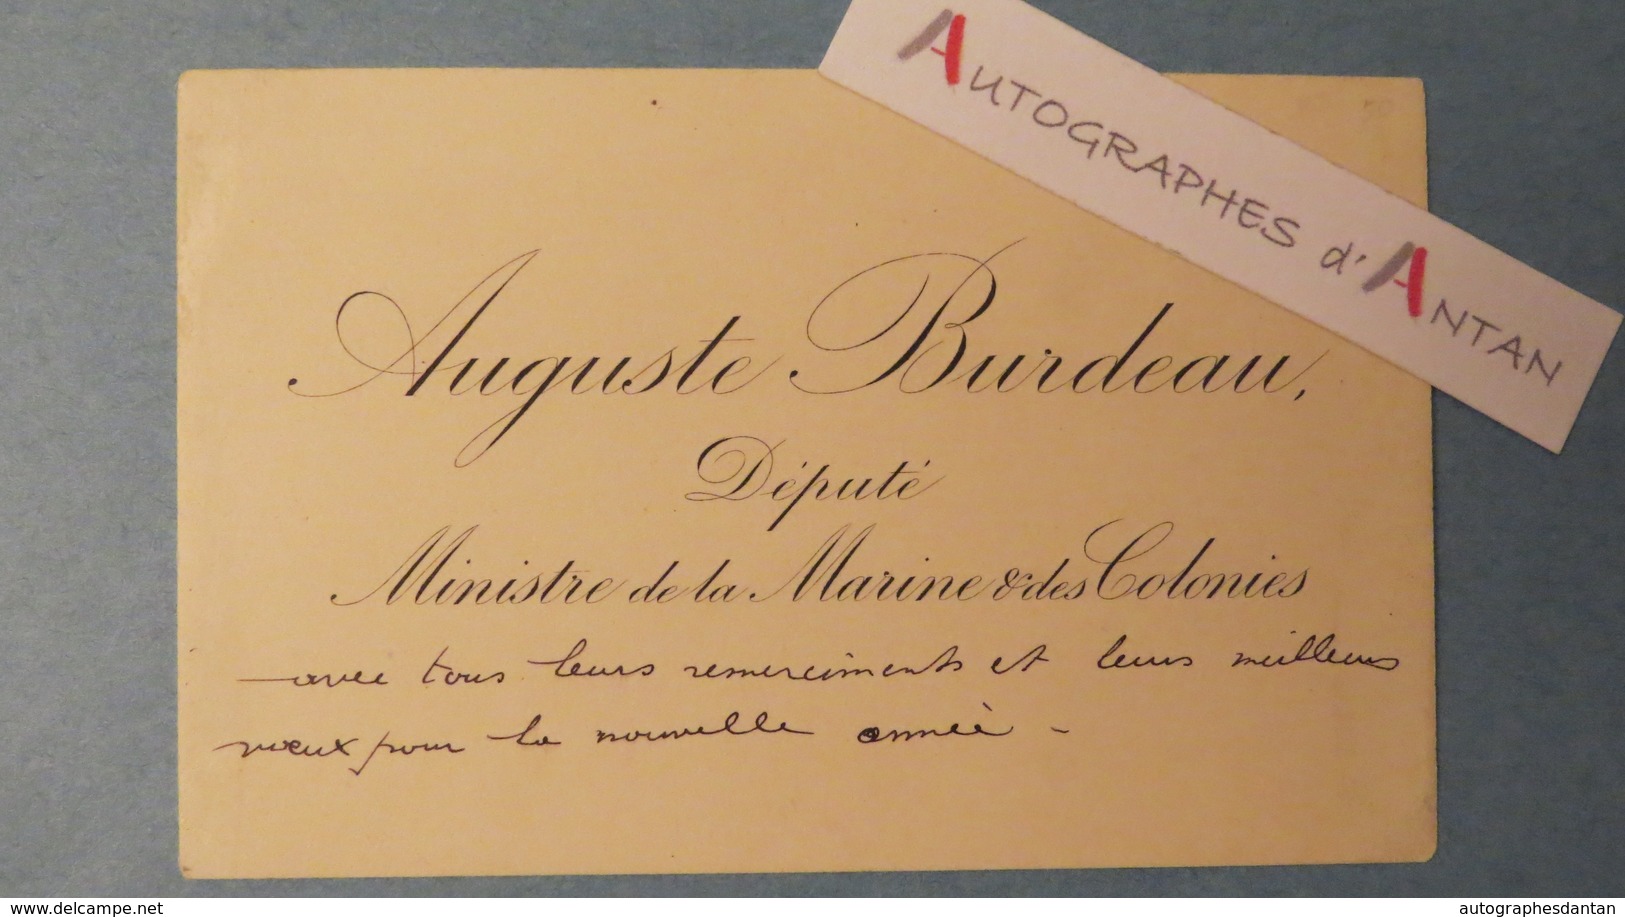 AUTOGRAPHES d'ANTAN
Auguste Burdeau,
Député
Ministre de la Marine & des Colonies
avec tous leurs remerciments et leurs meilleurs
vœux pour la nouvelle année -
www.delcampe.net
autographesdantan